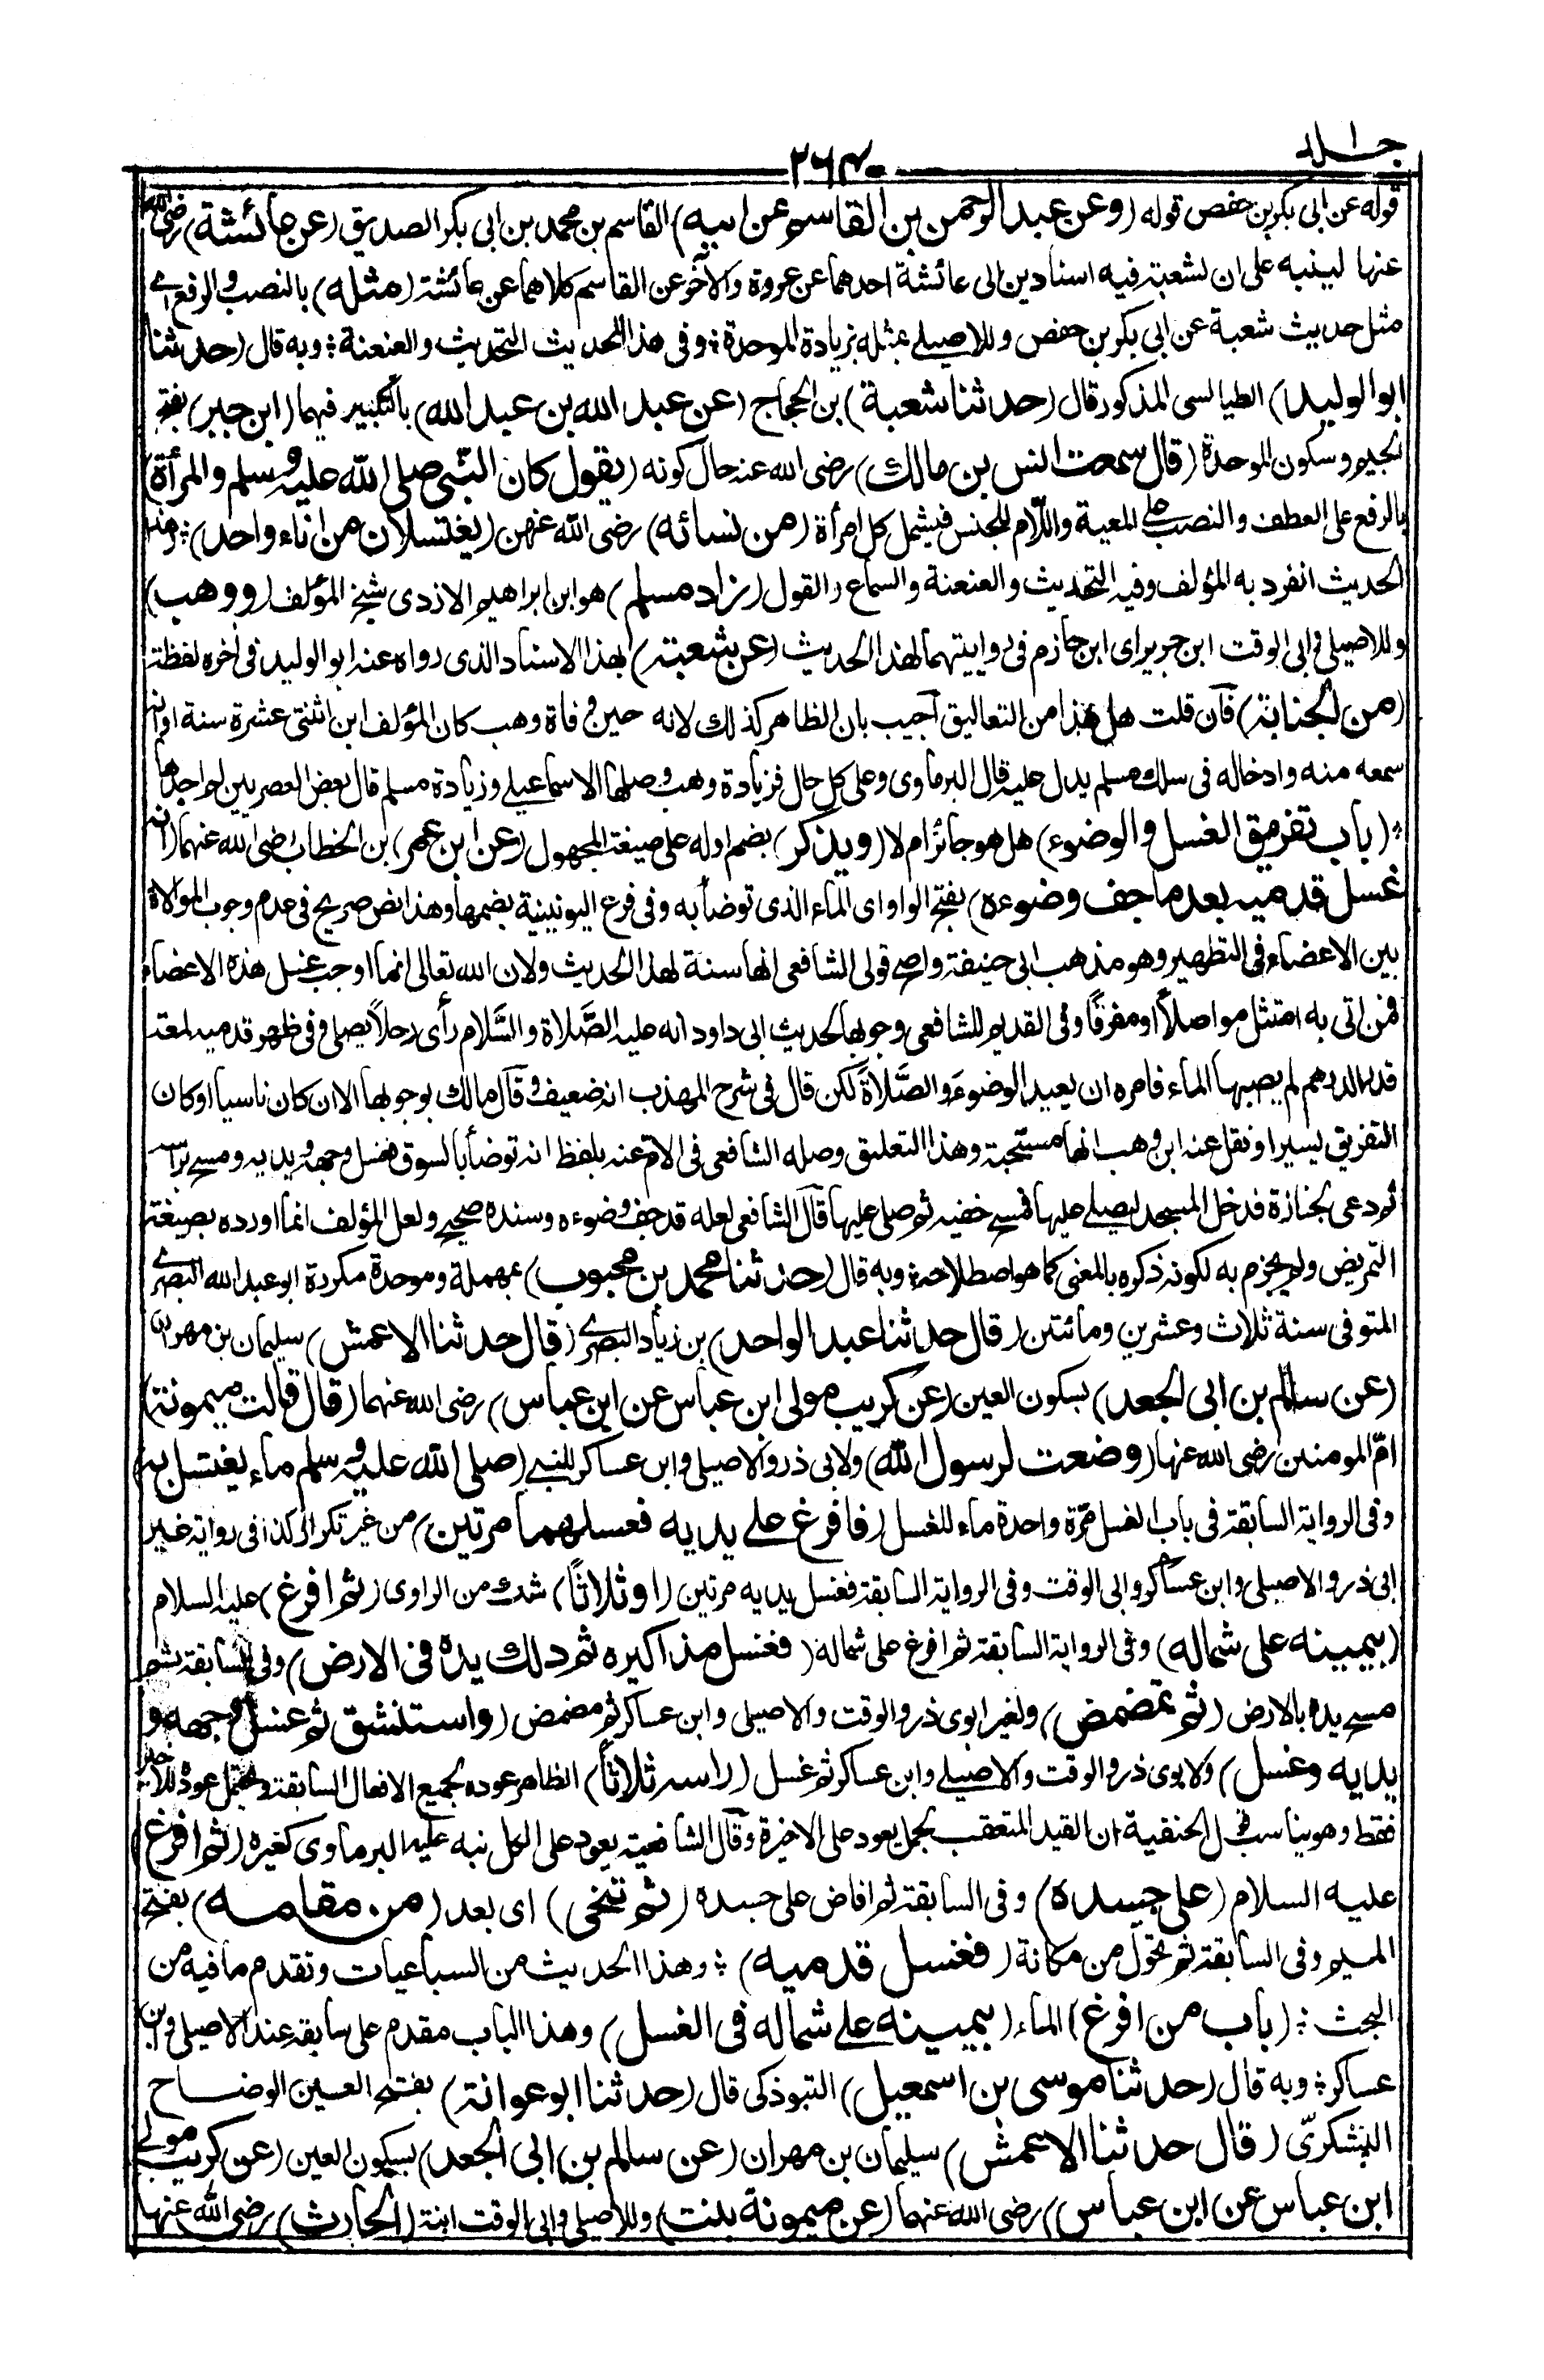 جلد ١
٢٦٤
قوله عن ابى بكر بن حفص قوله (وعن عبد الرحمن بن القاسم عن ابيه) القاسم بن محمد بن ابى بكر الصديق (عن عائشة) رضى الله
عنها لينبه على ان لشعبة فيه اسنادين الى عائشة احدهما عن عروة والآخر عن القاسم كلاهما عن عائشة (مثله) بالنصب والرفع اى
مثل حديث شعبة عن ابى بكر بن حفص وللاصيلى بمثله بزيادة الموحدة ؛ وفى هذا الحديث التحديث والعنعنة ؛ وبه قال (حدثنا
ابوالوليد) الطيالسى المذكور قال (حدثنا شعبة) بن الحجاج (عن عبد الله بن عبد الله) بالتكبير فيهما (ابن جبر) بفتح
الجيم وسكون الموحدة (قال سمعت انس بن مالك) رضى الله عنه حال كونه (يقول كان النبى صلى الله عليه وسلم والمرأة)
بالرفع على العطف والنصب على المعية واللام للجنس فيشمل كل امرأة (من نسائه) رضى الله عنهن (يغتسلان من اناء واحد) ؛ وهذا
الحديث انفرد به المؤلف وفيه التحديث والعنعنة والسماع والقول (زاد مسلم) هو ابن ابراهيم الازدى شيخ المؤلف (ووهب)
وللاصيلى وابى الوقت ابن جرير اى ابن حازم فى روايتهما لهذا الحديث (عن شعبة) بهذا الاسناد الذى رواه عنه ابو الوليد فى آخره لفظة
(من الجنابة) فان قلت هل هذا من التعاليق آجيب بان الظاهر كذلك لانه حين وفاة وهب كان المؤلف ابن اثنتى عشرة سنة او انه
سمعه منه وادخاله فى سلك مسلم يدل عليه قال البرماوى وعلى كل حال فزيادة وهب وصلها الاسماعيلى وزيادة مسلم قال بعض العصريين لم اجدها
؛ (باب تفريق الغسل والوضوء) هل هو جائز ام لا (ويذكر) بضم اوله على صيغة المجهول (عن ابن عمر) بن الخطاب رضى الله عنهما (انه
غسل قدميه بعد ما جف وضوءه) بفتح الواو اى الماء الذى توضأ به وفى فرع اليونينية بضمها وهذا نص صريح فى عدم وجوب الموالاة
بين الاعضاء فى التطهير وهو مذهب ابى حنيفة واصح قولى الشافعى انها سنة لهذا الحديث ولان الله تعالى انما اوجب غسل هذه الاعضاء
فمن اتى به امتثل مواصلاً او مفرقاً وفى القديم للشافعى وجوبها لحديث ابى داود انه عليه الصلاة والسلام رأى رجلاً يصلى وفى ظهر قدميه لمعة
قدر الدرهم لم يصبها الماء فامره ان يعيد الوضوء والصلاة لكن قال فى شرح المهذب انه ضعيف وقال مالك بوجوبها الا ان كان ناسيا او كان
التفريق يسيرا ونقل عنه ابن وهب انها مستحبة وهذا التعليق وصله الشافعى فى الام عنه بلفظ انه توضأ بالسوق فغسل وجهه ويديه ومسح برأسه
ثم دعى لجنازة فدخل المسجد ليصلى عليها فمسح خفيه ثم صلى عليها قال الشافعى لعله قد جف وضوءه وسنده صحيح ولعل المؤلف انما اورده بصيغة
التمريض ولم يجزم به لكونه ذكره بالمعنى كما هو اصطلاحه ؛ وبه قال (حدثنا محمد بن محبوب) بمهملة وموحدة مكررة ابو عبد الله البصرى
المتوفى سنة ثلاث وعشرين ومائتين (قال حدثنا عبد الواحد) بن زياد البصرى (قال حدثنا الاعمش) سليمان بن مهران
(عن سالم بن ابى الجعد) بسكون العين (عن كريب مولى ابن عباس عن ابن عباس) رضى الله عنهما (قال قالت ميمونة)
ام المومنين رضى الله عنها (وضعت لرسول الله) ولابى ذر والاصيلى وابن عساكر للنبى (صلى الله عليه وسلم ماء يغتسل به)
وفى الرواية السابقة فى باب الغسل مرة واحدة ماء للغسل (فافرغ على يديه فغسلهما مرتين) من غير تكرار كذا فى رواية غير
ابى ذر والاصيلى وابن عساكر وابى الوقت وفى الرواية السابقة فغسل يديه مرتين (او ثلاثاً) شك من الراوى (ثم افرغ) عليه السلام
(بيمينه على شماله) وفى الرواية السابقة ثم افرغ على شماله (فغسل مذاكيره ثم دلك يده فى الارض) وفى السابقة ثم
مسح يده بالارض (ثم تمضمض) ولغير ابوى ذر والوقت والاصيلى وابن عساكر ثم مضمض (واستنشق ثم غسل وجهه و
يديه وغسل) ولابوى ذر والوقت والاصيلى وابن عساكر ثم غسل (راسه ثلاثاً) الظاهر عوده لجميع الافعال السابقة ويحتمل عوده للاخير
فقط وهو يناسب قول الحنفية ان القيد المتعقب لجمل يعود على الاخيرة وقال الشافعية يعود على الكل نبه عليه البرماوى كغيره (ثم افرغ)
عليه السلام (على جسده) وفى السابقة ثم افاض على جسده (ثم تنحى) اى بعد (من مقامه) بفتح
الميم وفى السابقة ثم تحول من مكانة (فغسل قدميه) ؛ وهذا الحديث من السباعيات وتقدم ما فيه من
البحث ؛ (باب من افرغ) الماء (بيمينه على شماله فى الغسل) وهذا الباب مقدم على سابقه عند الاصيلى وابن
عساكر ؛ وبه قال (حدثنا موسى بن اسمعيل) التبوذكى قال (حدثنا ابو عوانة) بفتح العين الوضاح
اليشكرى (قال حدثنا الاعمش) سليمان بن مهران (عن سالم بن ابى الجعد) بسكون العين (عن كريب مولى
ابن عباس عن ابن عباس) رضى الله عنهما (عن ميمونة بنت) وللاصيلى وابى الوقت ابنة (الحارث) رضى الله عنها